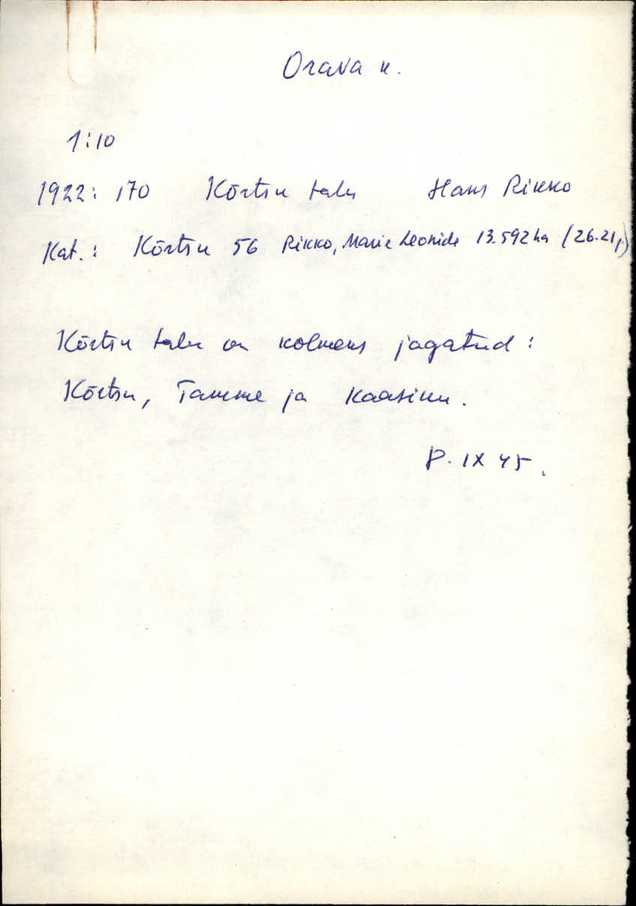 Orava k.
1:10
1922: 170 Kõrtsu talu Hans Rikko
Kat.: Kõrtsu 56 Rikko, Marie Leonide 13.592 ha (26.21,)
Kõrtsu talu on kolmeks jagatud:
Kõrtsu, Tamme ja Kaasiku.
P. IX 45.